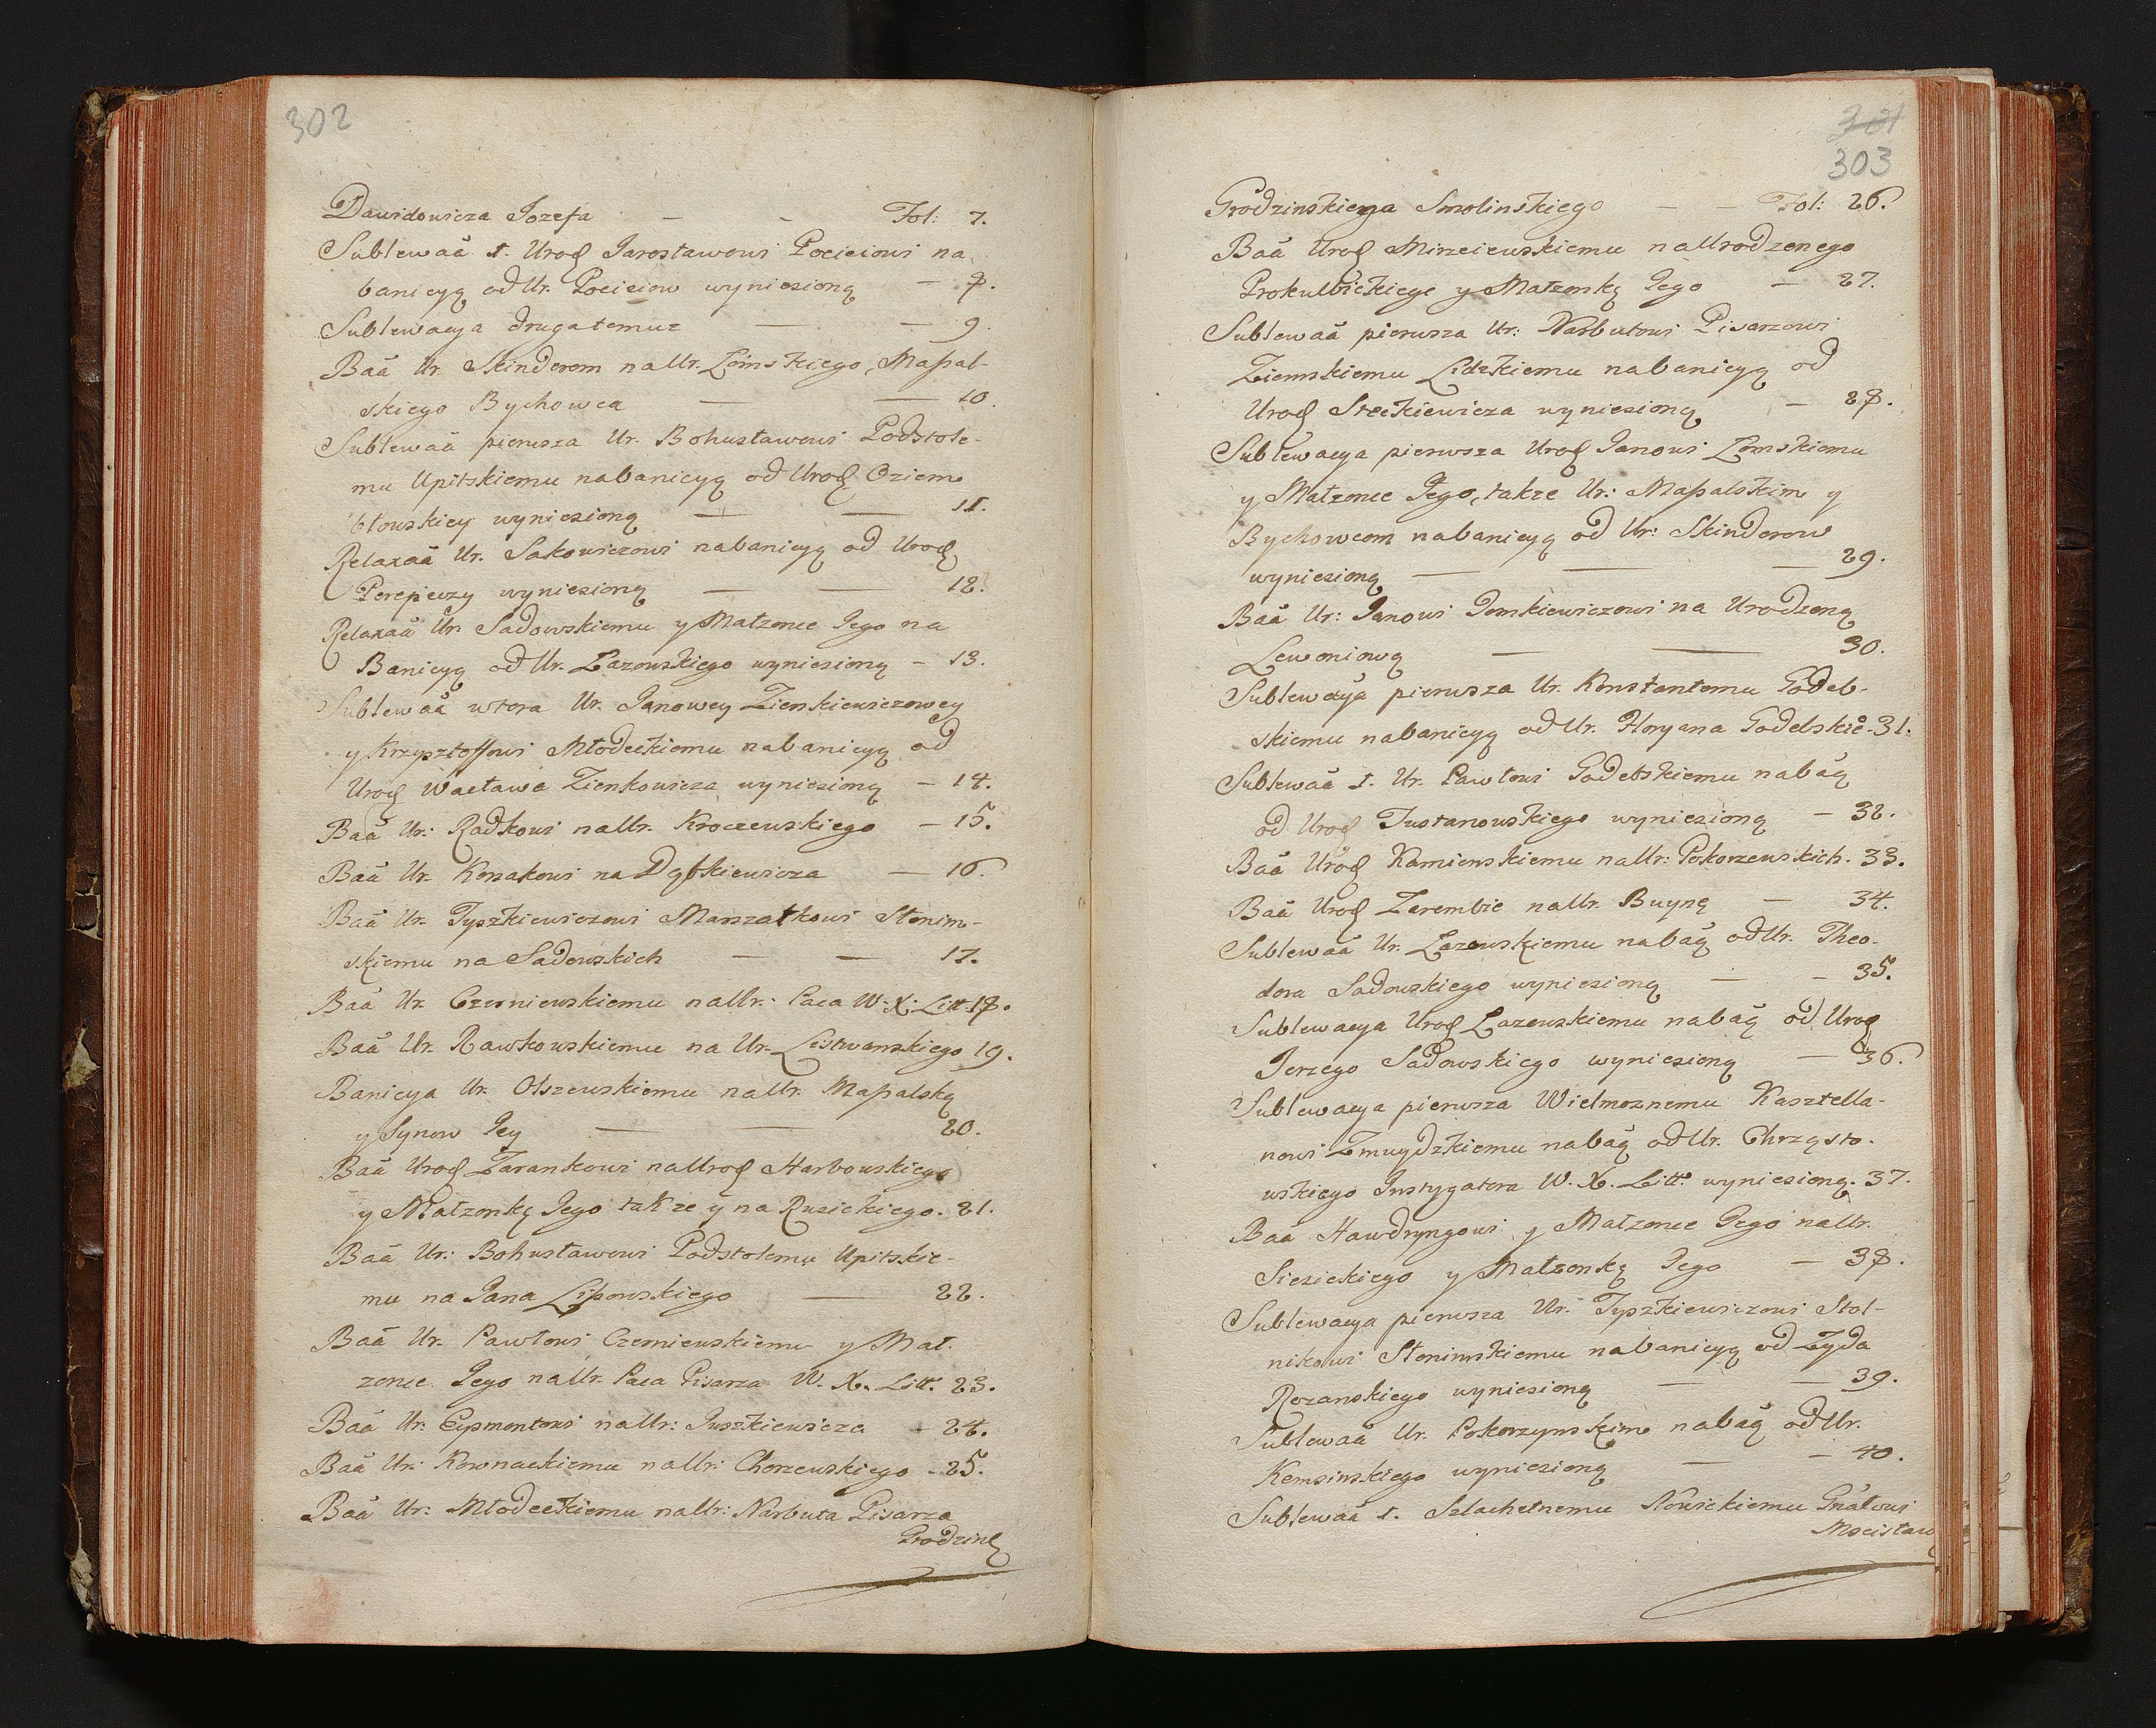 302
Dawidowicza Jozefa — - Fol: 7.
Sublewaã 1. Urod Jarosławowi Pocieiowi na
banicyą od Ur. Pocieiow wyniesioną — 8.
Sublewacya druga temuz — — 9.
Baã Ur. Skinderom na Ur. Łomskiego, Massal-
skiego Bychowca — — 10.
Sublewaã pierwsza Ur. Bohusławowi Podstole-
mu Upitskiemu na banicyą od Urod Oziem
błowskiey wyniesioną — — 11.
Relaxaã Ur. Sakowiczowi na banicyą od Urod
Perepeczy wyniesioną — — 12.
Relaxaã Ur. Sadowskiemu y Małzonce Jego na
Banicyą od Ur. Łazowskiego wyniesioną - 13.
Sublewaã wtora Ur. Janowey Zienkiewiczowey
y Krzysztoffowi Młodeckiemu na banicyą od
Urod Wacława Zienkowicza wyniesioną — 14.
Baã Ur: Radkowi na Ur. Kroczewskiego — 15.
Baã Ur. Kossakowi na Dąbkiewicza — 16.
Baã Ur. Tyszkiewiczowi Marszałkowi Słonim-
skiemu na Sadowskich — — 17.
Baã Ur. Czerniewskiemu na Ur: Paca W. X. Litt. 18.
Baã Ur. Rawkowskiemu na Ur. Listwanskiego 19.
Banicya Ur. Olszewskiemu na Ur. Massalską
y Synow Jey — — 20.
Baã Urod Zarankowi na Urod Harbowskiego
y Małzonkę Jego takze y na Rusickiego. 21.
Baã Ur: Bohusławowi Podstolemu Upitskie-
mu na Pana Lipowskiego — 22.
Baã Ur. Pawłowi Czerniewskiemu y Mał-
zonce Jego na Ur. Paca Pisarza W. X. Litt. 23.
Baã Ur: Eysmontowi na Ur: Juszkiewicza - 24.
Baã Ur: Kownackiemu na Ur: Chorzewskiego - 25.
Baã Ur: Młodeckiemu na Ur: Narbuta Pisarza
Grodzins
301
303
Grodzinskiego Smolinskiego — — Fol: 26.
Baã Urod Mirzeiewskiemu na Urodzonego
Prokulbickiego y Małzonkę Jego — 27.
Sublewaã pierwsza Ur: Narbutowi Pisarzowi
Ziemskiemu Lidzkiemu na banicyą od
Urod Steckiewicza wyniesioną — 28.
Sublewacya pierwsza Urod Janowi Łomskiemu
y Małzonce Jego, takze Ur: Massalskim y
Bychowcom na banicyą od Ur: Skinderow
wyniesioną — — — 29.
Baã Ur: Janowi Domkiewiczowi na Urodzoną
Lewoniową — — 30.
Sublewacya pierwsza Ur. Konstantemu Godeb-
skiemu na banicyą od Ur. Floryana Godelskie - 31.
Sublewaã 1. Ur. Pawłowi Godebskiemu na bãą
od Urod Tustanowskiego wyniesioną — 32.
Baã Urod Kamienskiemu na Ur: Pokorzewskich. 33.
Baã Urod Zarembie na Ur. Buynę — 34.
Sublewaã Ur. Łazowskiemu na bãą od Ur. Theo-
dora Sadowskiego wyniesioną — - 35.
Sublewacya Urod Łazowskiemu na bãą od Urod
Jerzego Sadowskiego wyniesioną — 36.
Sublewacya pierwsza Wielmoznemu Kasztella-
nowi Zmuydzkiemu na bãą od Ur. Chrząsto-
wskiego Instygatora W. X. Litt. wyniesioną. 37.
Baã Hawdryngowi y Małzonce Jego na Ur.
Siesickiego y Małzonkę Jego — 38.
Sublewacya pierwsza Ur. Tyszkiewiczowi Stol-
nikowi Słonimskiemu na banicyą od Zyda
Rozanskiego wyniesioną — — 39.
Sublewaã Ur. Pokorzymskim na bãą od Ur.
Kemsinskiego wyniesioną — — 40.
Sublewaã 1. Szlachetnemu Nowickiemu
Mscisław